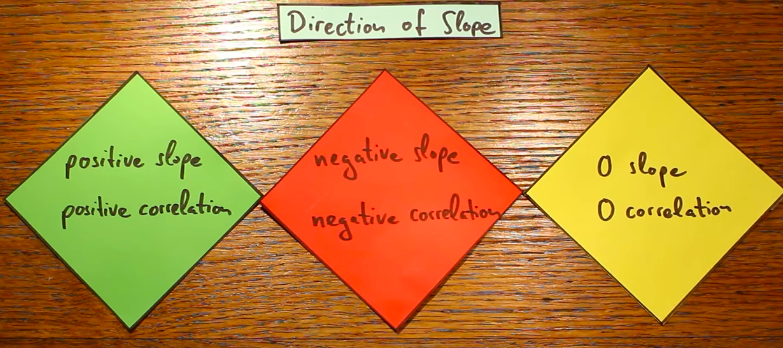 Direction of Slope
positive slope
positive correlation
negative slope
negative correlation
0 slope
0 correlation